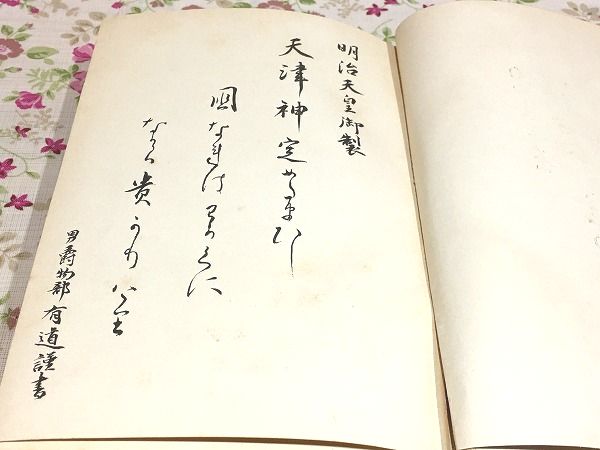 明治天皇御製
天津神定めたまひし
国なればわかくに
なから貴かりけり
男爵物部有道謹書